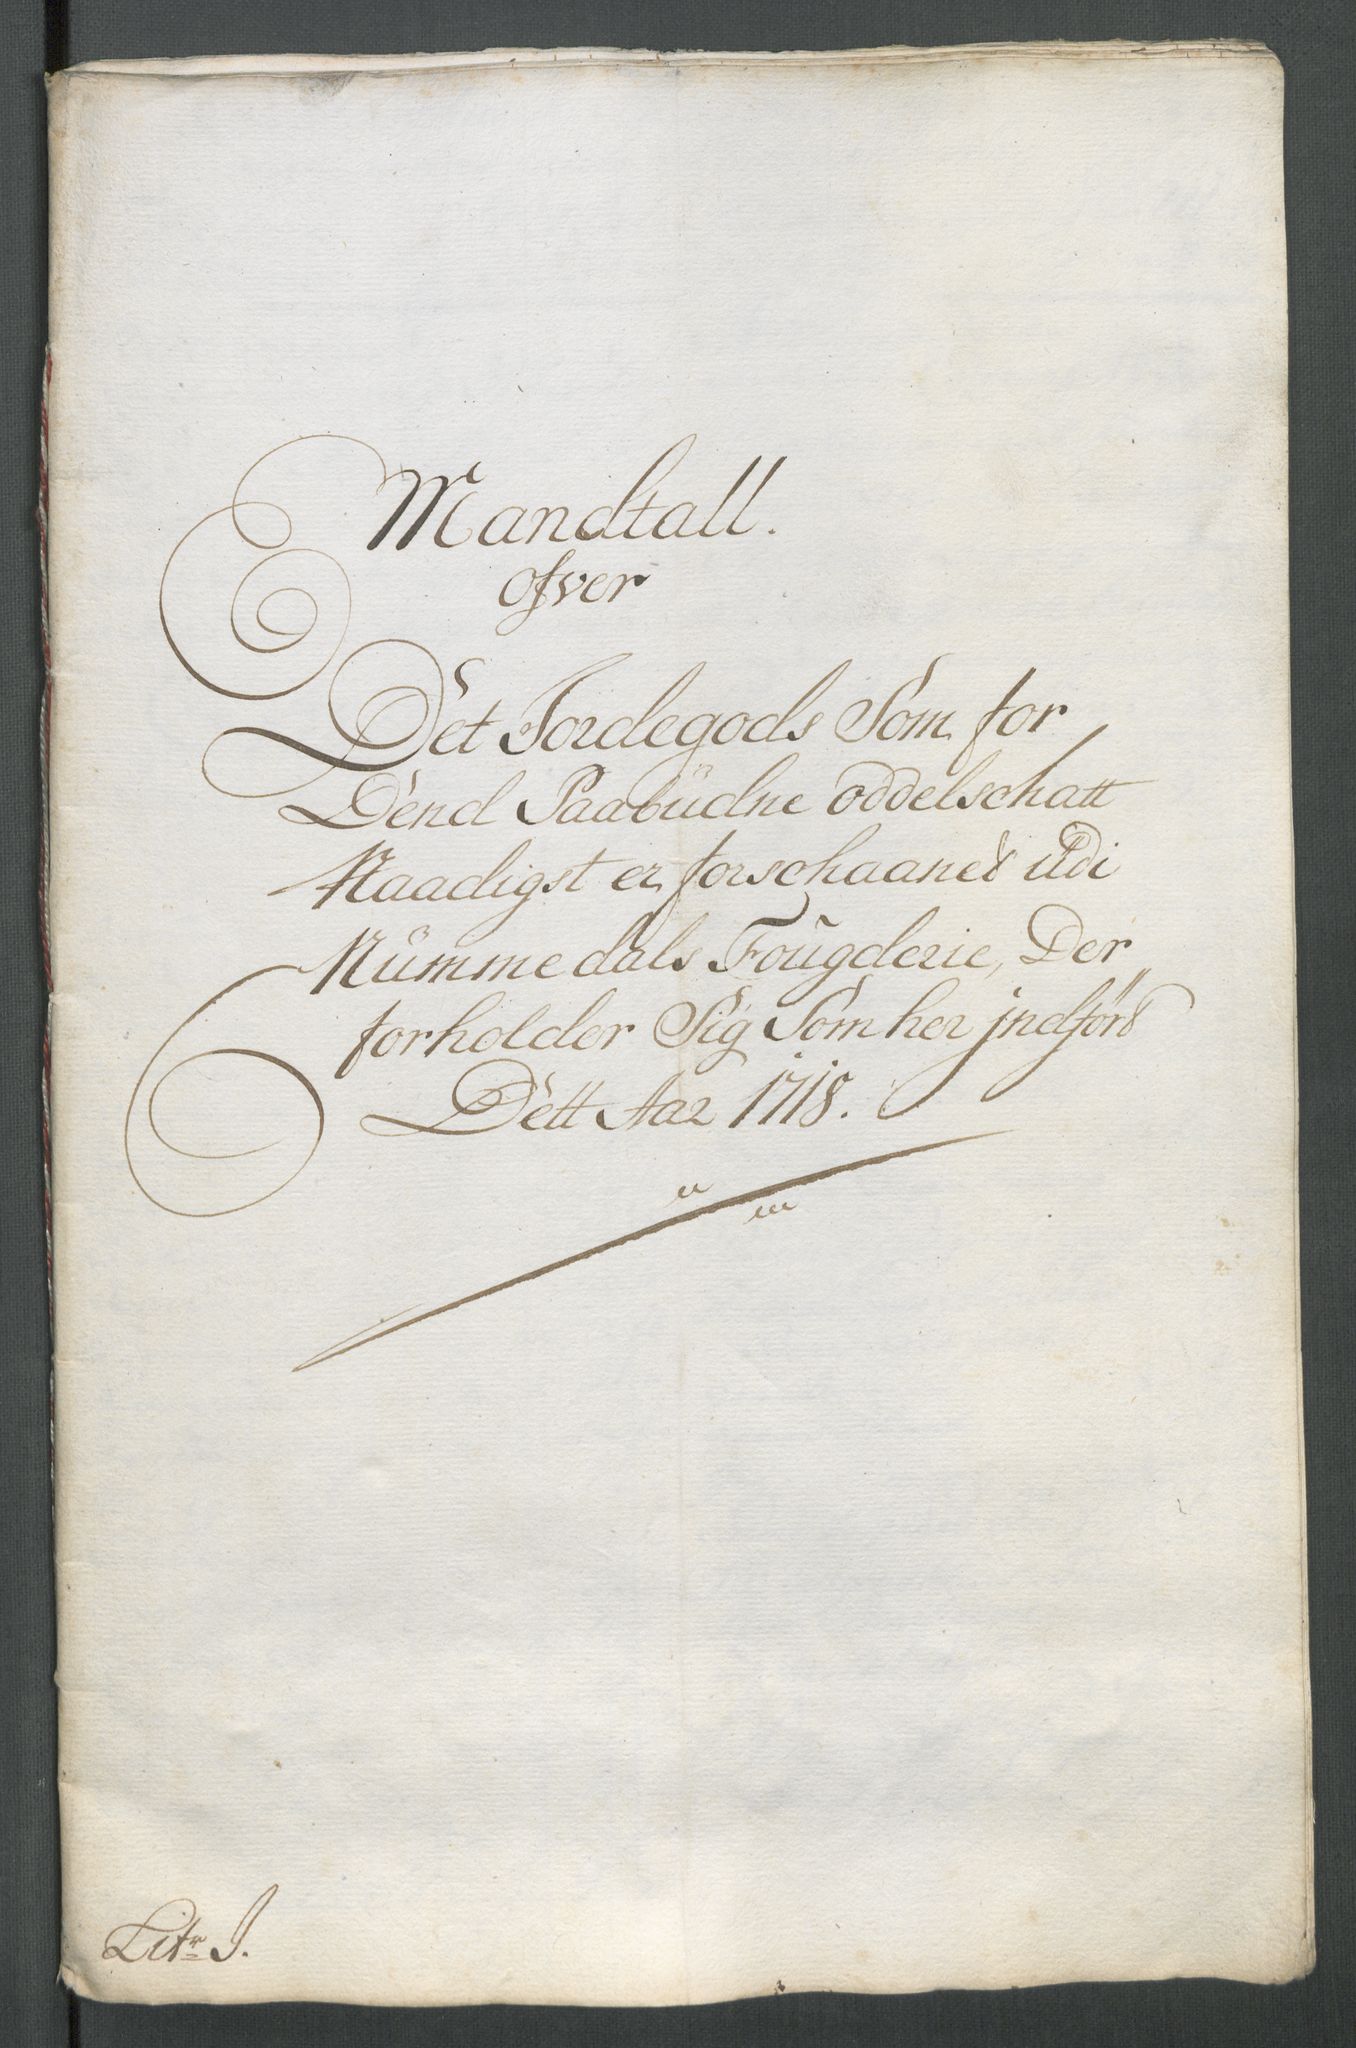 Mandtall.
ofver
Det Jordegods Som for
Dend Paabüdne oddelschatt
Naadigst er forschaaned udi
Nümmedals Fougderie, Der
forholder Sig Som her jndförd
Dett Aar 1718.
Litr J.